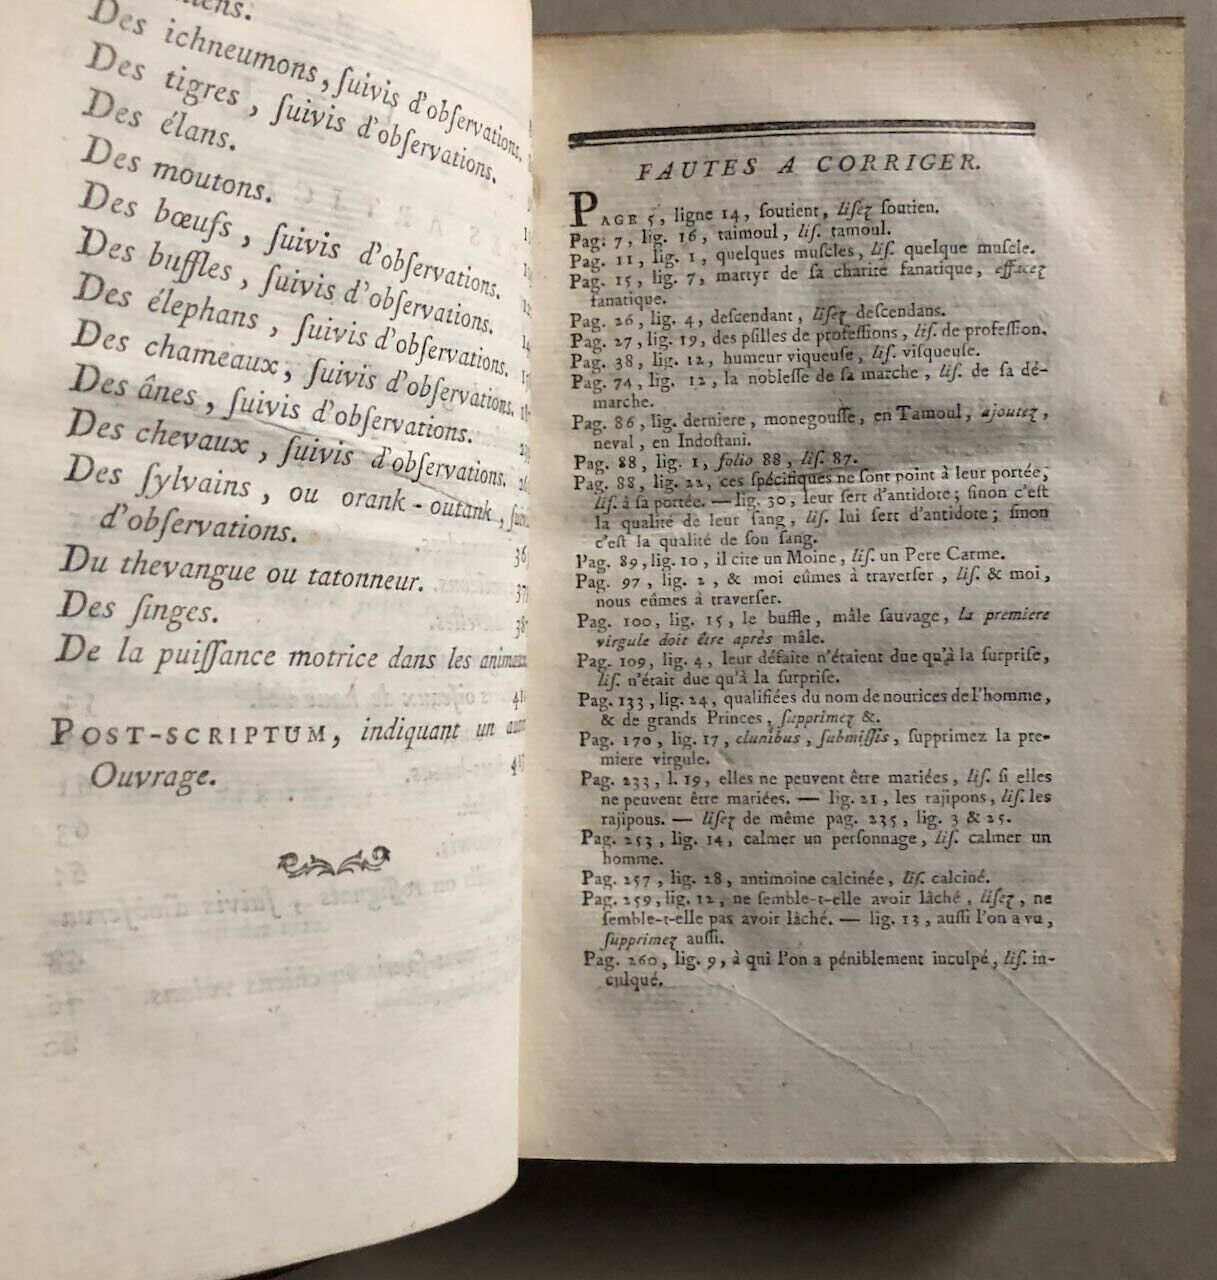 Des ichneumons, ſuivis d'obſervations.
Des tigres, ſuivis d'obſervations.
Des élans.
Des moutons.
Des bœufs, ſuivis d'obſervations.
Des buffles, ſuivis d'obſervations.
Des élephans, ſuivis d'obſervations.
Des chameaux, ſuivis d'obſervations.
Des ânes, ſuivis d'obſervations.
Des chevaux, ſuivis d'obſervations.
Des ſylvains, ou orank-outank,
d'obſervations.
Du thevangue ou tatonneur.
Des ſinges.
De la puiſſance motrice dans les
POST-SCRIPTUM, indiquant un
Ouvrage.
FAUTES A CORRIGER.
PAGE 5, ligne 14, ſoutient, liſez ſoutien.
Pag. 7, lig. 16, taimoul, liſ. tamoul.
Pag. 11, lig. 1, quelques muſcles, liſ. quelque muſcle.
Pag. 15, lig. 7, martyr de ſa charité fanatique, effacez
fanatique.
Pag. 26, lig. 4, deſcendant, liſez deſcendans.
Pag. 27, lig. 19, des pſilles de profeſſions, liſ. de profeſſion.
Pag. 38, lig. 12, humeur viqueuſe, liſ. viſqueuſe.
Pag. 74, lig. 12, la nobleſſe de ſa marche, liſ. de ſa dé-
marche.
Pag. 86, lig. derniere, monegouſſe, en Tamoul, ajoutez,
neval, en Indoſtani.
Pag. 88, lig. 1, folio 88, liſ. 87.
Pag. 88, lig. 22, ces ſpécifiques ne ſont point à leur portée,
liſ. à ſa portée. — lig. 30, leur ſert d'antidote; ſinon c'eſt
la qualité de leur ſang, liſ. lui ſert d'antidote; ſinon
c'eſt la qualité de ſon ſang.
Pag. 89, lig. 10, il cite un Moine, liſ. un Pere Carme.
Pag. 97, lig. 2, & moi eûmes à traverſer, liſ. & moi,
nous eûmes à traverſer.
Pag. 100, lig. 15, le buffle, mâle ſauvage, la premiere
virgule doit être après mâle.
Pag. 109, lig. 4, leur défaite n'étaient due qu'à la ſurpriſe,
liſ. n'était due qu'à la ſurpriſe.
Pag. 133, lig. 24, qualifiées du nom de nourices de l'homme,
& de grands Princes, ſupprimez &.
Pag. 170, lig. 17, clunibus, ſubmiſſis, ſupprimez la pre-
miere virgule.
Pag. 233, l. 19, elles ne peuvent être mariées, liſ. ſi elles
ne peuvent être mariées. — lig. 21, les rajipons, liſ. les
rajipous. — liſez de même pag. 235, lig. 3 & 25.
Pag. 253, lig. 14, calmer un perſonnage, liſ. calmer un
homme.
Pag. 257, lig. 28, antimoine calcinée, liſ. calciné.
Pag. 259, lig. 12, ne ſemble-t-elle avoir lâché, liſez, ne
ſemble-t-elle pas avoir lâché. — lig. 13, auſſi l'on a vu,
ſupprimez auſſi.
Pag. 260, lig. 9, à qui l'on a péniblement inculpé, liſ. in-
culqué.